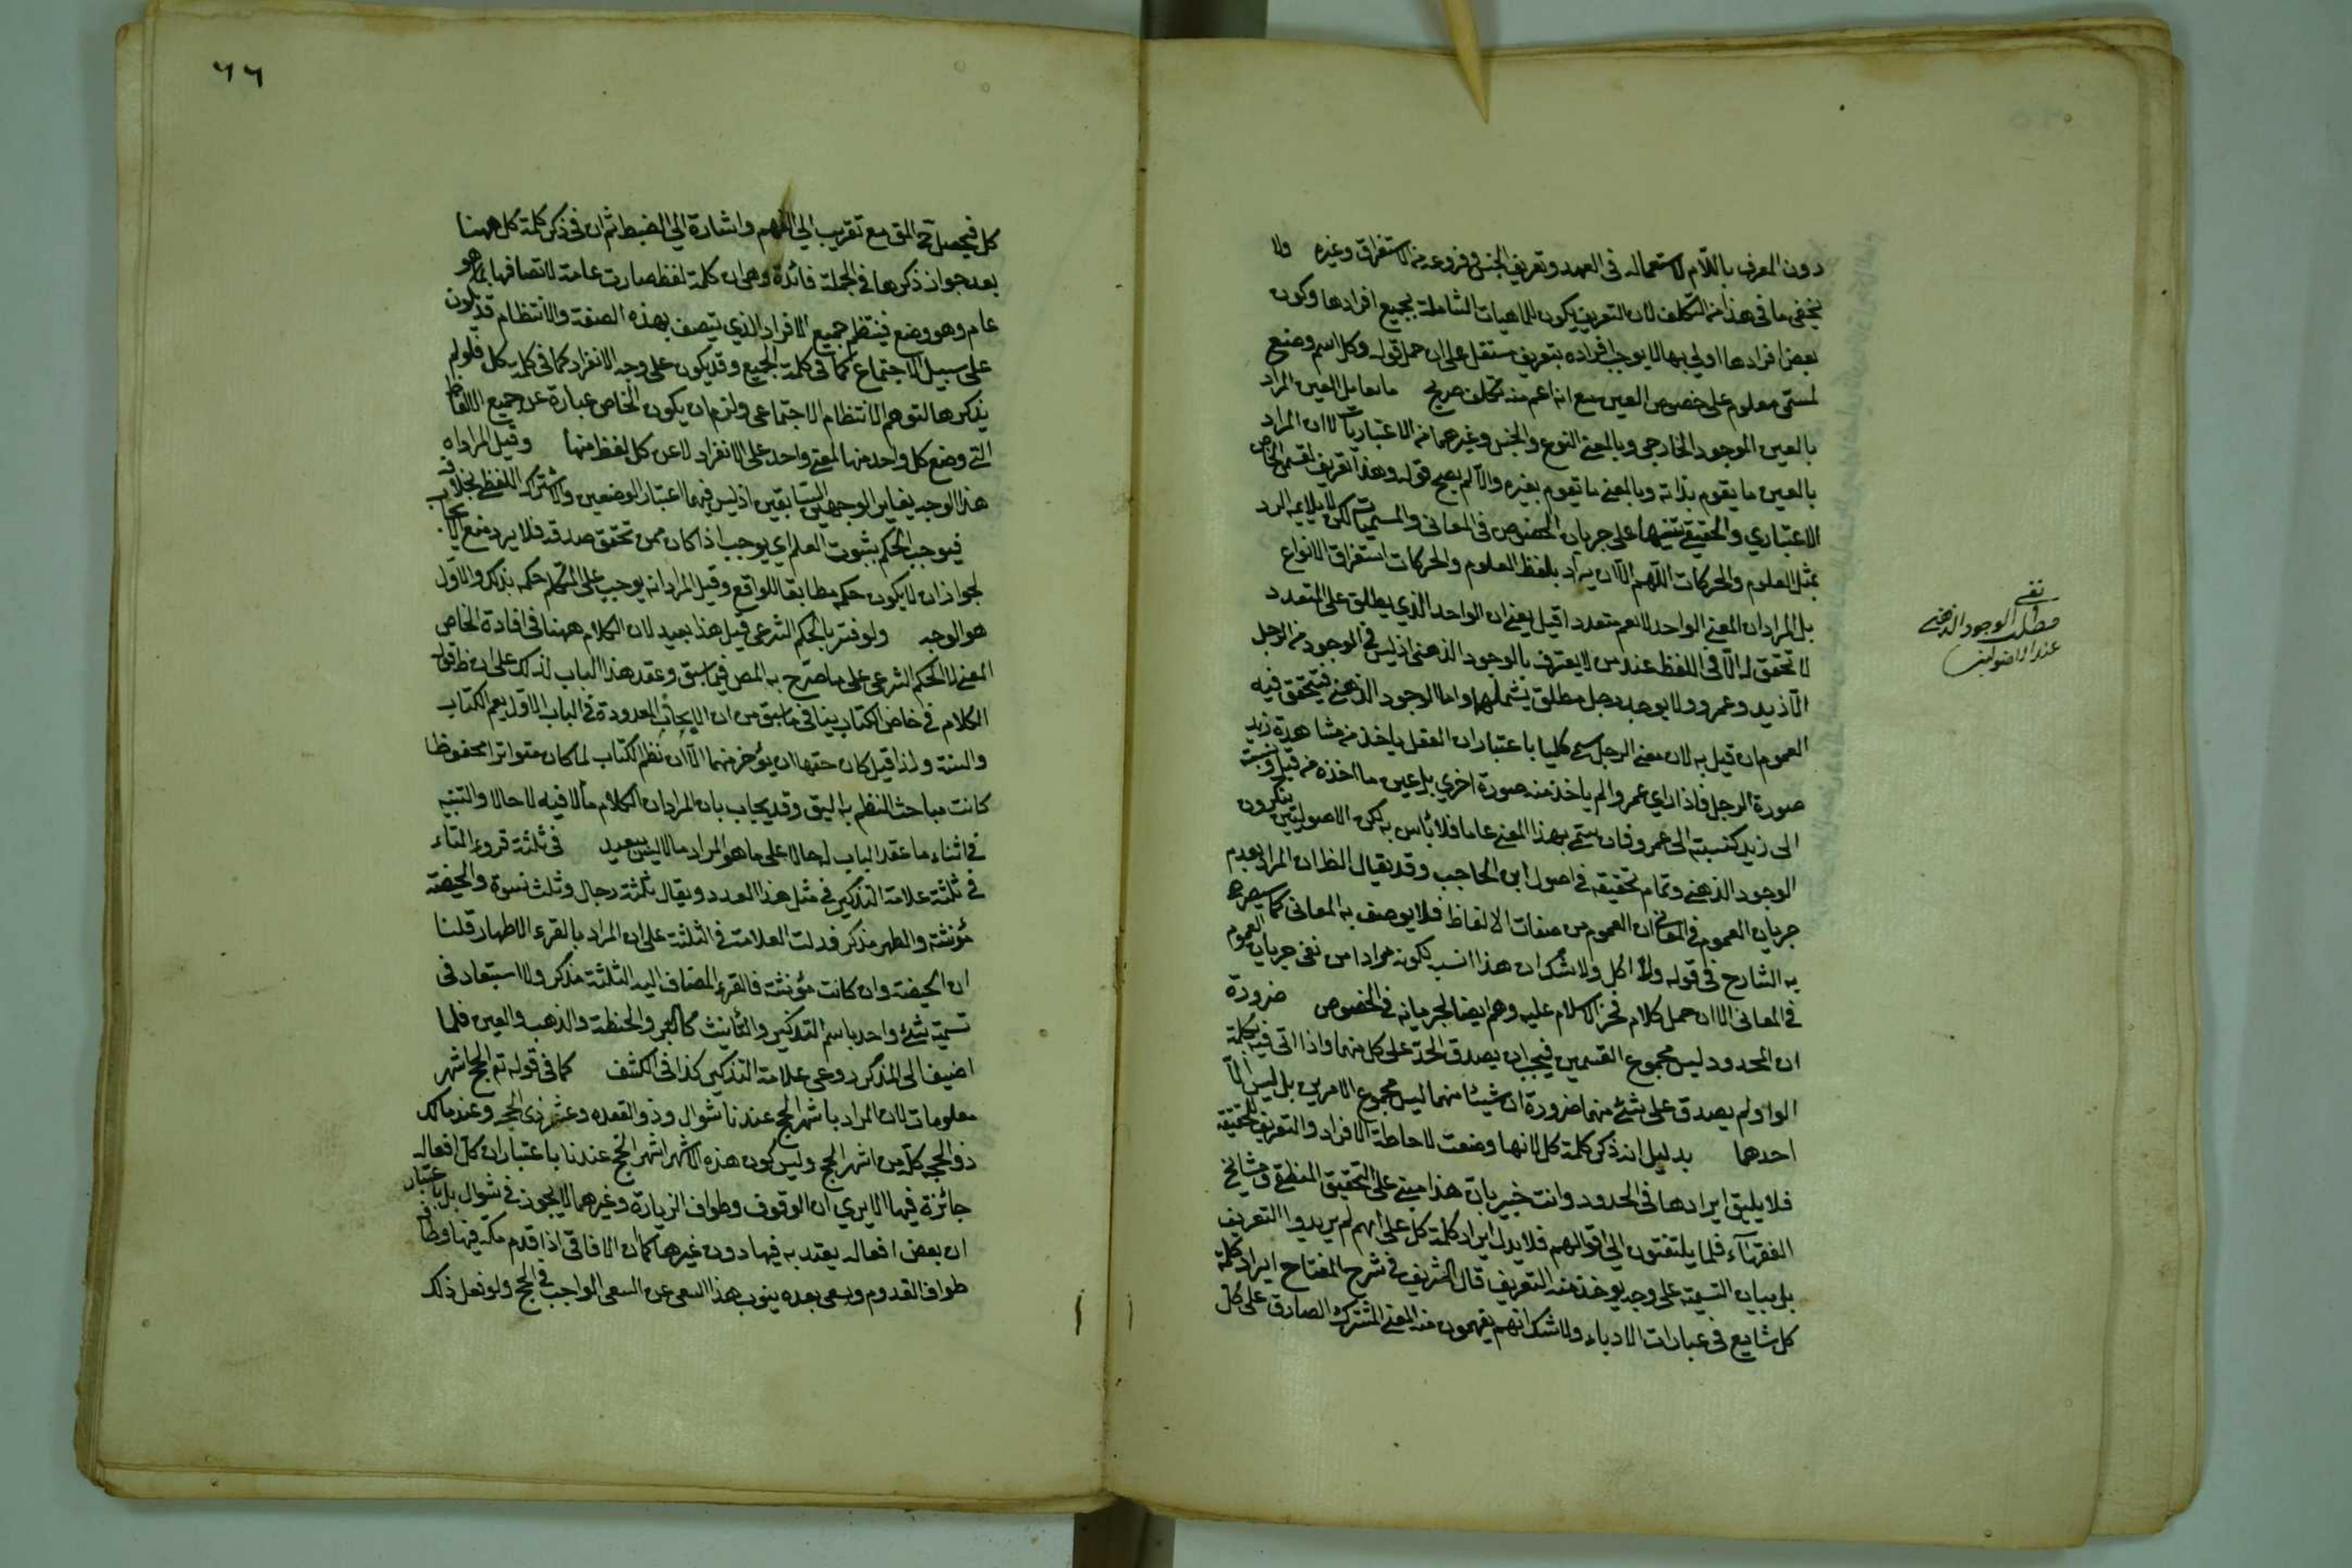 دون المعرف باللام لاستعماله فى العهد وتعريف الجنس وفروعه من الاستغراق وغيره ولا
يخفى ما فى هذا من التكلف لان التعريف يكون للماهيات الشاملة بجميع افرادها وكون
بعض افرادها اولى بها لا يوجب افراده بتعريف مستقل على ان حمل قوله وكل اسم وضع
لمسمى معلوم على خصوص العين مع انه اعم منه تكلف صريح ما يقابل العين المراد
بالعين الموجود الخارجى وبالمعنى النوع والجنس وغيرهما من الاعتباريات لا ان المراد
بالعين ما يقوم بذاته وبالمعنى ما تقوم بغيره والا لم يصح قوله وهذا تعريف لقسمى الخاص
الاعتباري والحقيقى تنبيها على جريان الخصوص فى المعانى والمسميات لكن لا يلايمه الرد
بمثل العلوم والحركات اللهم الا ان يراد بلفظ العلوم والحركات استغراق الانواع
بل المراد ان المعنى الواحد لا يعم متعددا قيل يعنى ان الواحد الذي يطلق على المتعدد
لا تحقق له الا فى اللفظ عند من لا يعترف بالوجود الذهنى اذ ليس فى الوجود من الرجل
الا زيد وعمرو ولا يوجد رجل مطلق يشملهما واما الوجود الذهنى فيتحقق فيه
العموم ان قيل به لان معنى الرجل سمى كليا باعتبار ان العقل ياخذ من مشاهدة زيد
صورة الرجل فاذا راي عمروا لم ياخذ منه صورة اخري بل عين ما اخذه من قبل ونسبته
الى زيد كنسبته الى عمرو فان سمى بهذا المعنى عاما فلا باس به لكن الاصوليين ينكرون
الوجود الذهنى وتمام تحقيقه فى اصول ابن الحاجب وقد يقال الظ ان المراد بعدم
جريان العموم فى المعانى ان العموم من صفات الالفاظ فلا يوصف به المعانى كما سيصرح
به الشارح فى قوله ولا اكل ولا شك ان هذا انسب بكونه مرادا من نفى جريان العموم
فى المعانى الا ان حمل كلام فخر الاسلام عليه وهم ايضا لجريانه فى الخصوص ضرورة
ان المحدود ليس مجموع القسمين فيجب ان يصدق الحد على كل منهما واذا اتى فيه بكلمة
الواو لم يصدق على شئ منهما ضرورة ان شيئا منهما ليس مجموع الامرين بل ليس الا
احدهما بدليل انه ذكر كلمة كل لانها وضعت لاحاطة الافراد والتعريف للحقيقة
فلا يليق ايرادها فى الحدود وانت خبير بان هذا مبنى على التحقيق المنطقى ومشايخ
الفقهاء قلما يلتفتون الى اقوالهم فلا يدل ايراد كلمة كل على انهم لم يريدوا التعريف
بل بيان التسمية على وجه يوخذ منه التعريف قال الشريف فى شرح المفتاح ايراد كلمة
كل شايع فى عبارات الادباء ولا شك انهم يفهمون منه المعنى المشترك الصادق على كل
نفى
مطلب الوجود الذهنى
عند الاصوليين
٦٦
كل فيحصل ح المق مع تقريب الى الفهم واشارة الى الضبط ثم ان فى ذكر كلمة كل ههنا
بعد جواز ذكرها فى الجملة فائدة وهى ان كلمة لفظ صارت عامة لاتصافها بما هو
عام وهو وضع فينتظم جميع الافراد الذي يتصف بهذه الصفة والانتظام قد يكون
على سبيل الاجتماع كما فى كلمة الجميع وقد يكون على وجه الانفراد كما فى كلمة كل فلو لم
يذكرها لتوهم الانتظام الاجتماعى ولزم ان يكون الخاص عبارة عن جميع الالفاظ
التى وضع كل واحد منها لمعنى واحد على الانفراد لا عن كل لفظ منها وقيل المراد اه
هذا الوجه يغاير الوجهين السابقين اذ ليس فيهما اعتبار الوضعين والاشتراك اللفظى بخلافه
فيوجب الحكم بثبوت العلم اي يوجب اذا كان ممن تحقق صدقه فلا يرد منع الايجاب
لجواز ان لا يكون حكمه مطابقا للواقع وقيل المراد انه يوجب على المتكلم حكمه بذلك والاول
هو الوجه ولو فسر بالحكم الشرعى قيل هذا بعيد لان الكلام ههنا فى افادة الخاص
المعنى لا الحكم الشرعى على ما صرح به المص فيما سبق وعقد هذا الباب لذلك على ان ظ قوله
الكلام فى خاص الكتاب ينافى ما سبق من ان الابحاث المعدودة فى الباب الاول يعم الكتاب
والسنة ولذا قيل كان حقها ان يؤخر منهما الا ان نظم الكتاب لما كان متواترا محفوظا
كانت مباحث النظم به اليق وقد يجاب بان المراد ان الكلام مالا فيه لا حالا والتنبيه
فى اثناء ما عقد الباب له حالا على ما هو المراد مالا ليس ببعيد فى ثلثة قروء التاء
فى ثلثة علامة التذكير فى مثل هذا العدد ويقال ثلثة رجال وثلث نسوة والحيضة
مؤنثة والطهر مذكر فدلت العلامة فى الثلثة على ان المراد بالقرء الاطهار قلنا
ان الحيضة وان كانت مؤنثة فالقرء المضاف اليه الثلثة مذكر ولا استبعاد فى
تسمية شئ واحد باسم التذكير والتانيث كالبر والحنطة والذهب والعين فلما
اضيف الى المذكر روعى علامة التذكير كذا فى الكشف كما فى قوله تع الحج اشهر
معلومات لان المراد باشهر الحج عندنا شوال وذو القعده وعشر ذى الحجه وعند مالك
ذو الحجه كله من اشهر الحج وليس كون هذه الاشهر اشهر الحج عندنا باعتبار ان كل افعاله
جائزة فيها الا يري ان الوقوف وطواف الزيارة وغيرهما لا يجوز فى شوال بل باعتبار
ان بعض افعاله يعتد به فيها دون غيرها كما ان الافاقى اذا قدم مكة فيها وطاف
طواف القدوم وسعى بعده ينوب هذا السعى عن السعى الواجب فى الحج ولو فعل ذلك